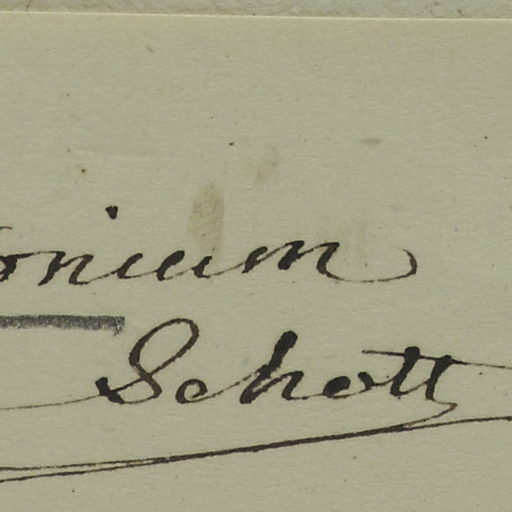 onium
Schott